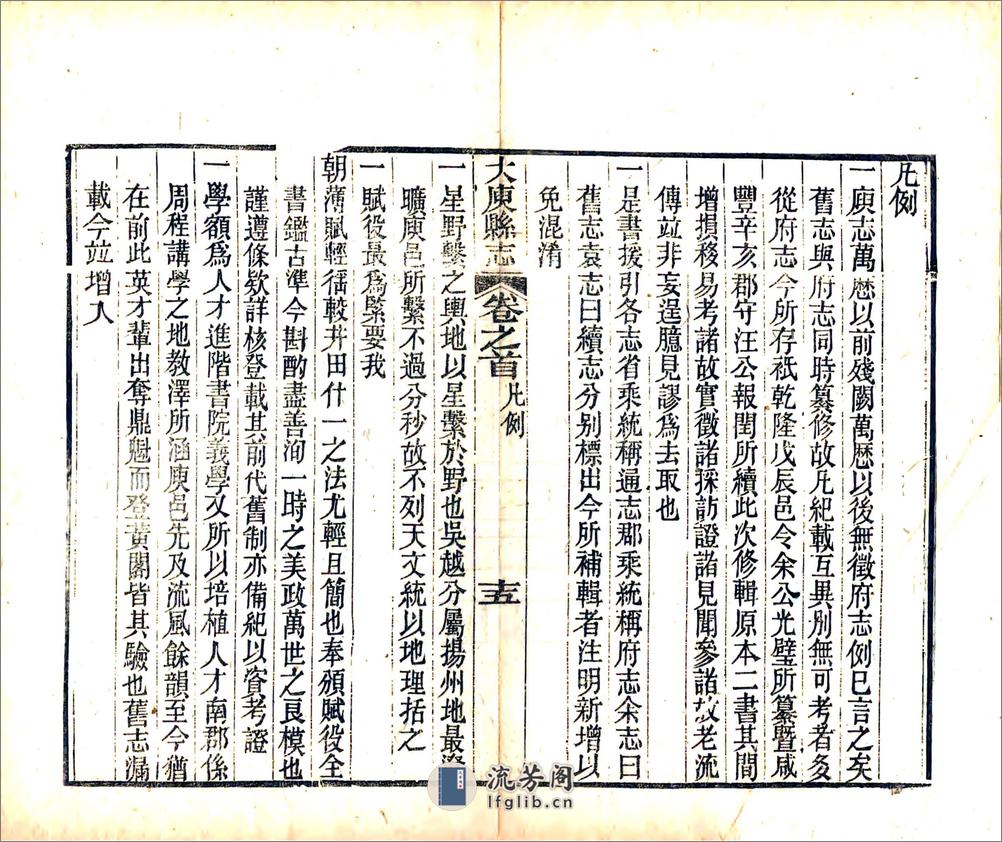 凡例
一庾志萬厯以前殘闕萬厯以後無徵府志例已言之矣
舊志與府志同時纂修故凡紀載互異別無可考者多
從府志今所存祇乾隆戊辰邑令余公光璧所纂暨咸
豐辛亥郡守汪公報閏所續此次修輯原本二書其間
增損移易考諸故實徵諸採訪證諸見聞參諸故老流
傳並非妄逞臆見謬為去取也
一是書援引各志省乘統稱通志郡乘統稱府志余志曰
舊志袁志曰續志分別標出今所補輯者注明新增以
免混淆
大庾縣志 卷之首 凡例 十五
一星野繫之輿地以星繫於野也吳越分屬揚州地最遼
曠庾邑所繫不過分秒故不列天文統以地理括之
一賦役最為緊要我
朝薄賦輕徭較井田什一之法尤輕且簡也奉頒賦役全
書鑑古準今斟酌盡善洵一時之美政萬世之良模也
謹遵條欵詳核登載其前代舊制亦備紀以資考證
一學額為人才進階書院義學又所以培植人才南郡係
周程講學之地教澤所涵庾邑先及流風餘韻至今猶
在前此英才輩出奪鼎魁而登黃閣皆其驗也舊志漏
載今並增入
流芳阁
lfglib.cn